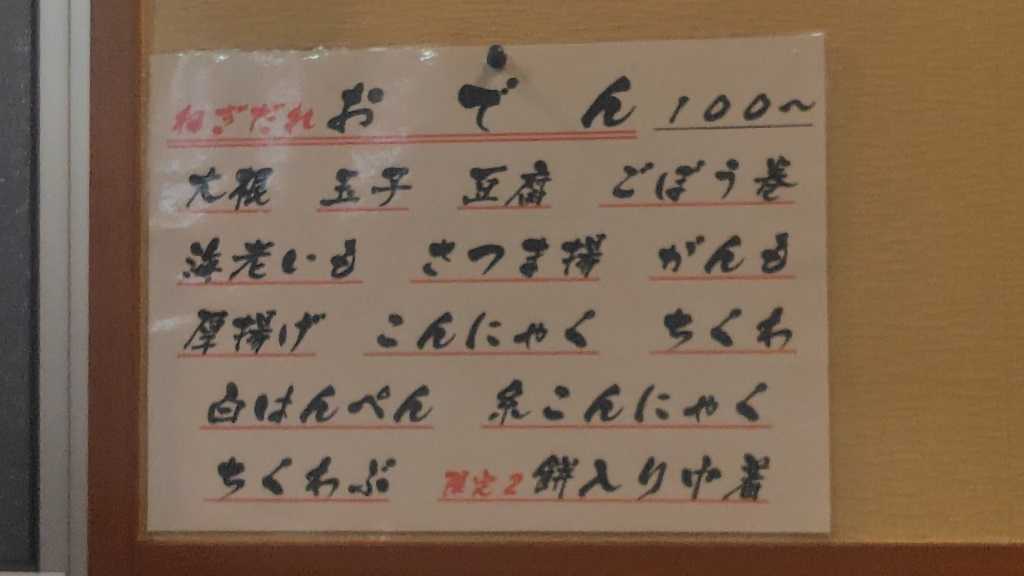 ねぎだれ おでん 100~
大根 玉子 豆腐 ごぼう巻
海老いも さつま揚 がんも
厚揚げ こんにゃく ちくわ
白はんぺん 糸こんにゃく
ちくわぶ 限定2 餅入り巾着